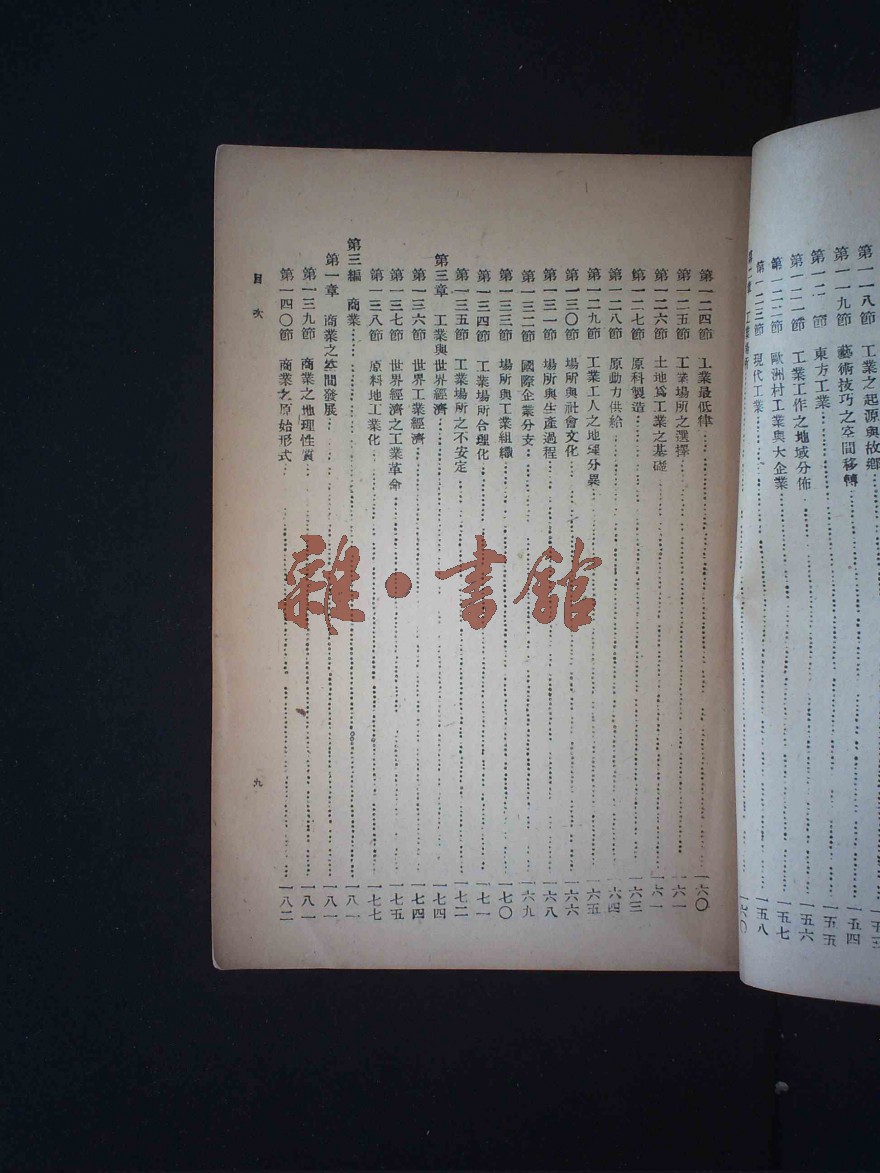 第一一八節 工業之起源與故鄉
第一一九節 藝術技巧之空間移轉……一五四
第一二 節 東方工業……一五五
第一二一節 工業工作之地域分佈……一五六
第一二二節 歐洲村工業與大企業……一五七
第一二三節 現代工業……一五八
第二章 工業場所……一六〇
第一二四節 工業最低律……一六〇
第一二五節 工業場所之選擇……一六一
第一二六節 土地爲工業之基礎……一六一
第一二七節 原料製造……一六三
第一二八節 原動力供給……一六四
第一二九節 工業工人之地理分異……一六五
第一三〇節 場所與社會文化……一六六
第一三一節 場所與生產過程……一六八
第一三二節 國際企業分支……一六九
第一三三節 場所與工業組織……一七〇
第一三四節 工業場所合理化……一七一
第一三五節 工業場所之不安定……一七二
第三章 工業與世界經濟……一七四
第一三六節 世界工業經濟……一七四
第一三七節 世界經濟之工業革命……一七五
第一三八節 原料地工業化……一七七
第三編 商業……一八一
第一章 商業之空間發展……一八一
第一三九節 商業之地理性質……一八一
第一四〇節 商業之原始形式……一八二
目次
九
雜·書館